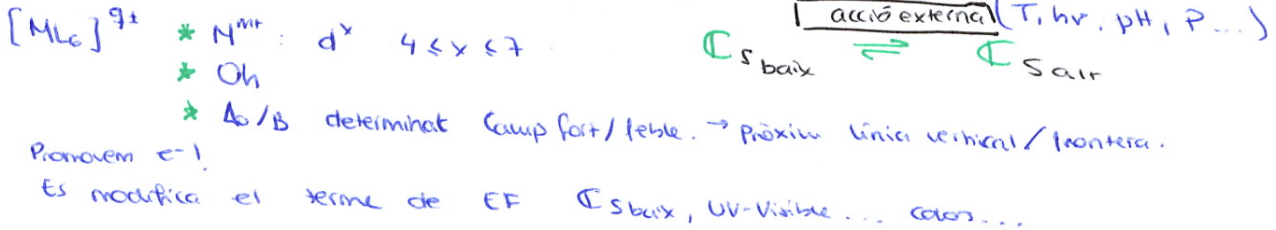 [ML6]q± * Mm+ : dx 4 ≤ x ≤ 7
acció externa (T, hν, pH, P...)
ℂS baix ⇌ ℂS alt
* Oh
* Δo/B determinat Camp fort/feble. → Pròxim línia vertical/frontera.
Promovem e-!
Es modifica el terme de EF ℂS baix, UV-Visible... color...